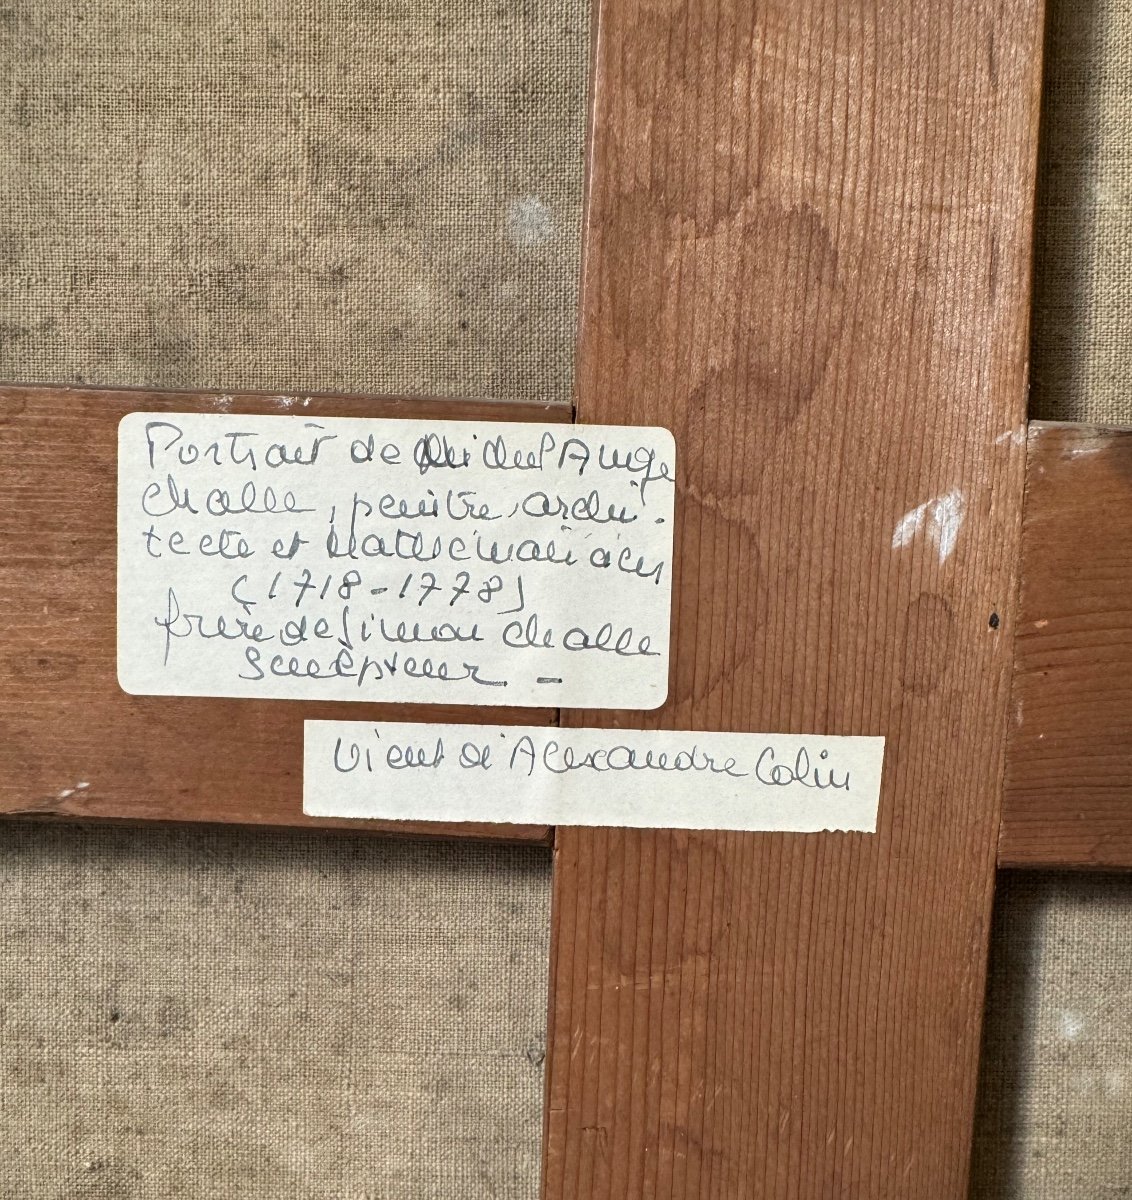 Portrait de Michel Ange
Challe, peintre, archi-
tecte et Mathématicien
(1718-1778)
frère de Simon Challe
Sculpteur -
Vient d'Alexandre Colin